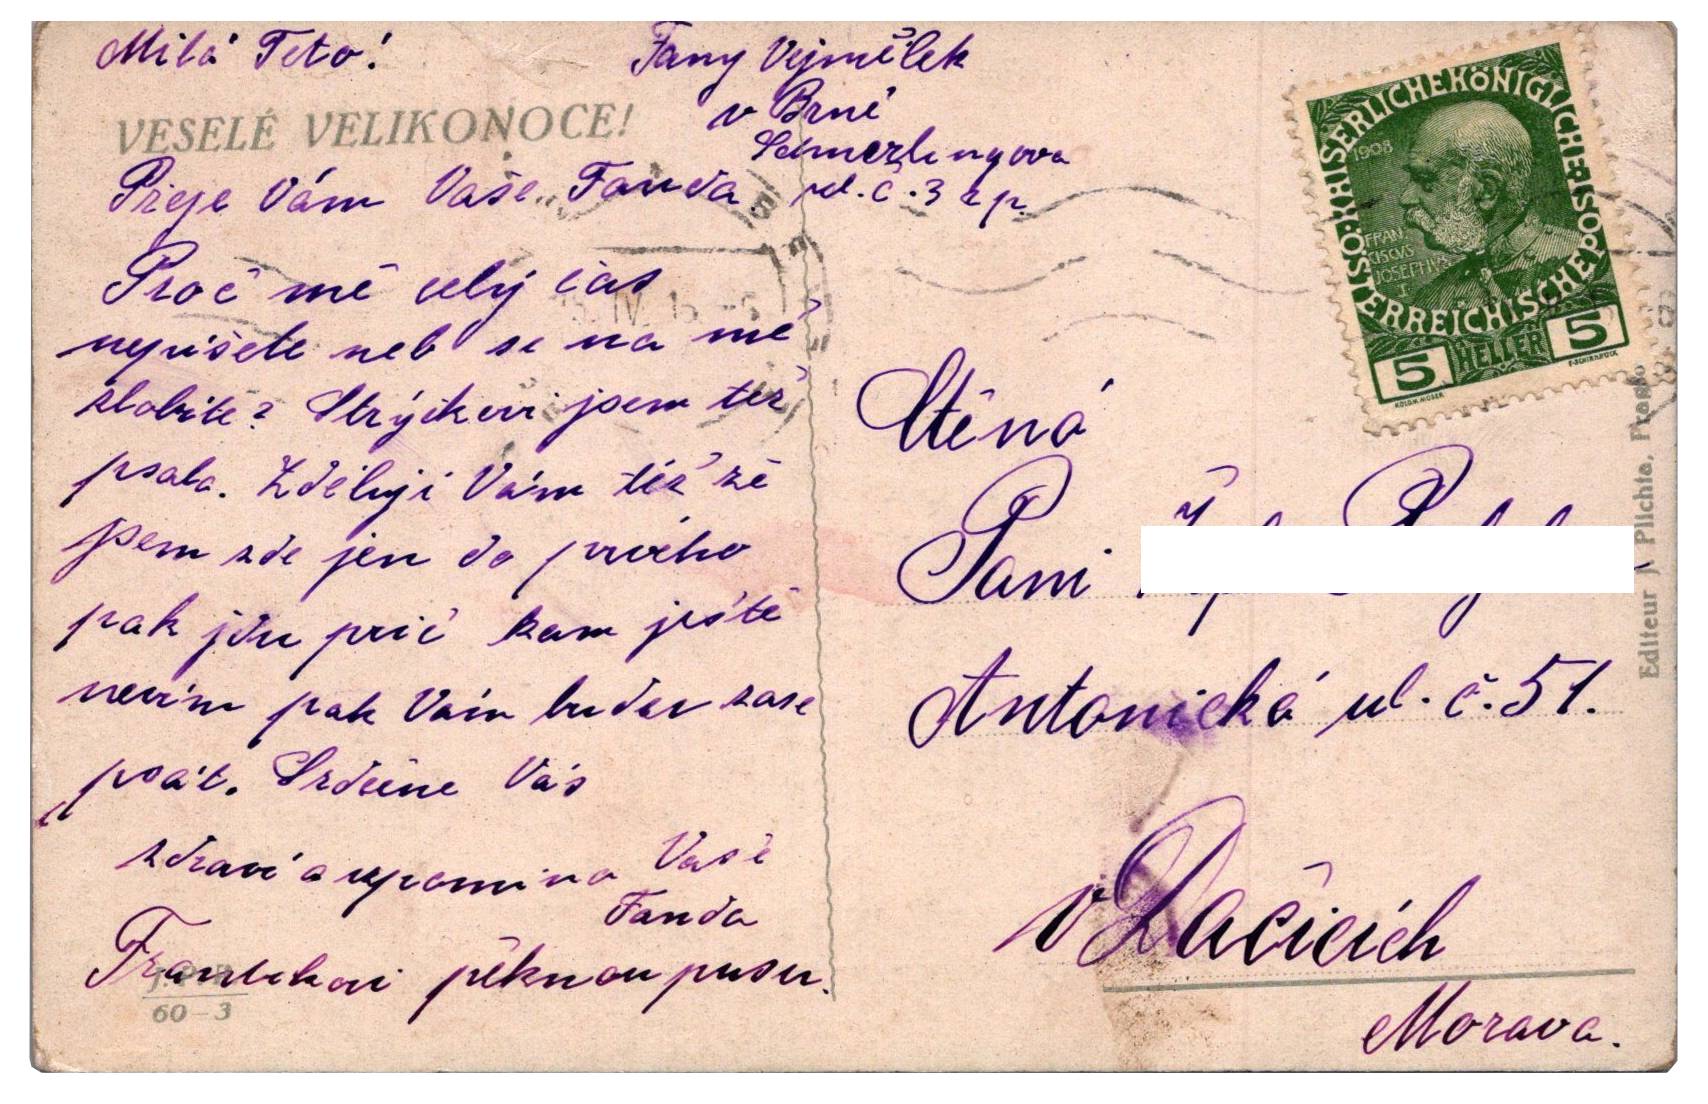 Milá Teto!
VESELÉ VELIKONOCE!
Preje Vám Vaše Fanda
Proč mě celý čas
nepíšete neb se na mě
zlobíte? Strýčkovi jsem též
psala. Zděluji Vám též že
jsem zde jen do prvého
pak jdu prič kam ještě
nevím pak Vám budu zase
psát. Srdečne Vás
zdraví a vzpomíná Vaše
Fanda
Frantíkovi pěknou pusu.
60-3
Fany Vejmělek
v Brně
Schmerlingova
ul. č. 3
15 IV
ctěná
Pani
Antonická ul. č. 51.
v Dačicích
Morava.
KAISERLICHE KÖNIGLICHE ÖSTERREICHISCHE POST
1908
FRAN
CISCVS
JOSEPHVS
I
5 HELLER 5
KOLOM. MOSER
F. SCHIRNBÖCK
Editeur J. Plichta, Praha